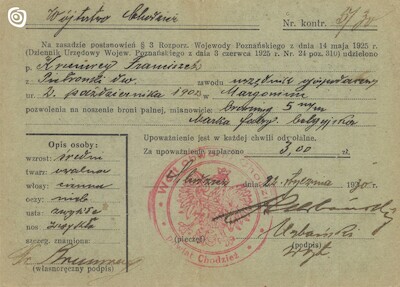 Wójtostwo Chodzież
Nr. kontr. 5/30
Na zasadzie postanowień § 3 Rozporz. Wojewody Poznańskiego z dnia 14 maja 1925 r.
(Dziennik Urzędowy Wojew. Poznańskiego z dnia 3 czerwca 1925 r. Nr. 24 poz. 310) udzielono
p. Franciszek
zawodu urzędnik gospodarczy
ur. 2. października 1903 w Margonin
pozwolenia na noszenie broni palnej, mianowicie: browning 5 m/m
Marka fabr. belgijska
Upoważnienie jest w każdej chwili odwołalne.
Za upoważnienie zapłacone 3,00 zł.
Opis osoby:
wzrost: średni
twarz owalna
włosy ciemne
oczy
usta zwykłe
nos zwykły
szczeg. znamiona:
(własnoręczny podpis)
Chodzież dnia 21 stycznia 1930 r.
Powiat Chodzież
(pieczęć)
(podpis)
Urbański